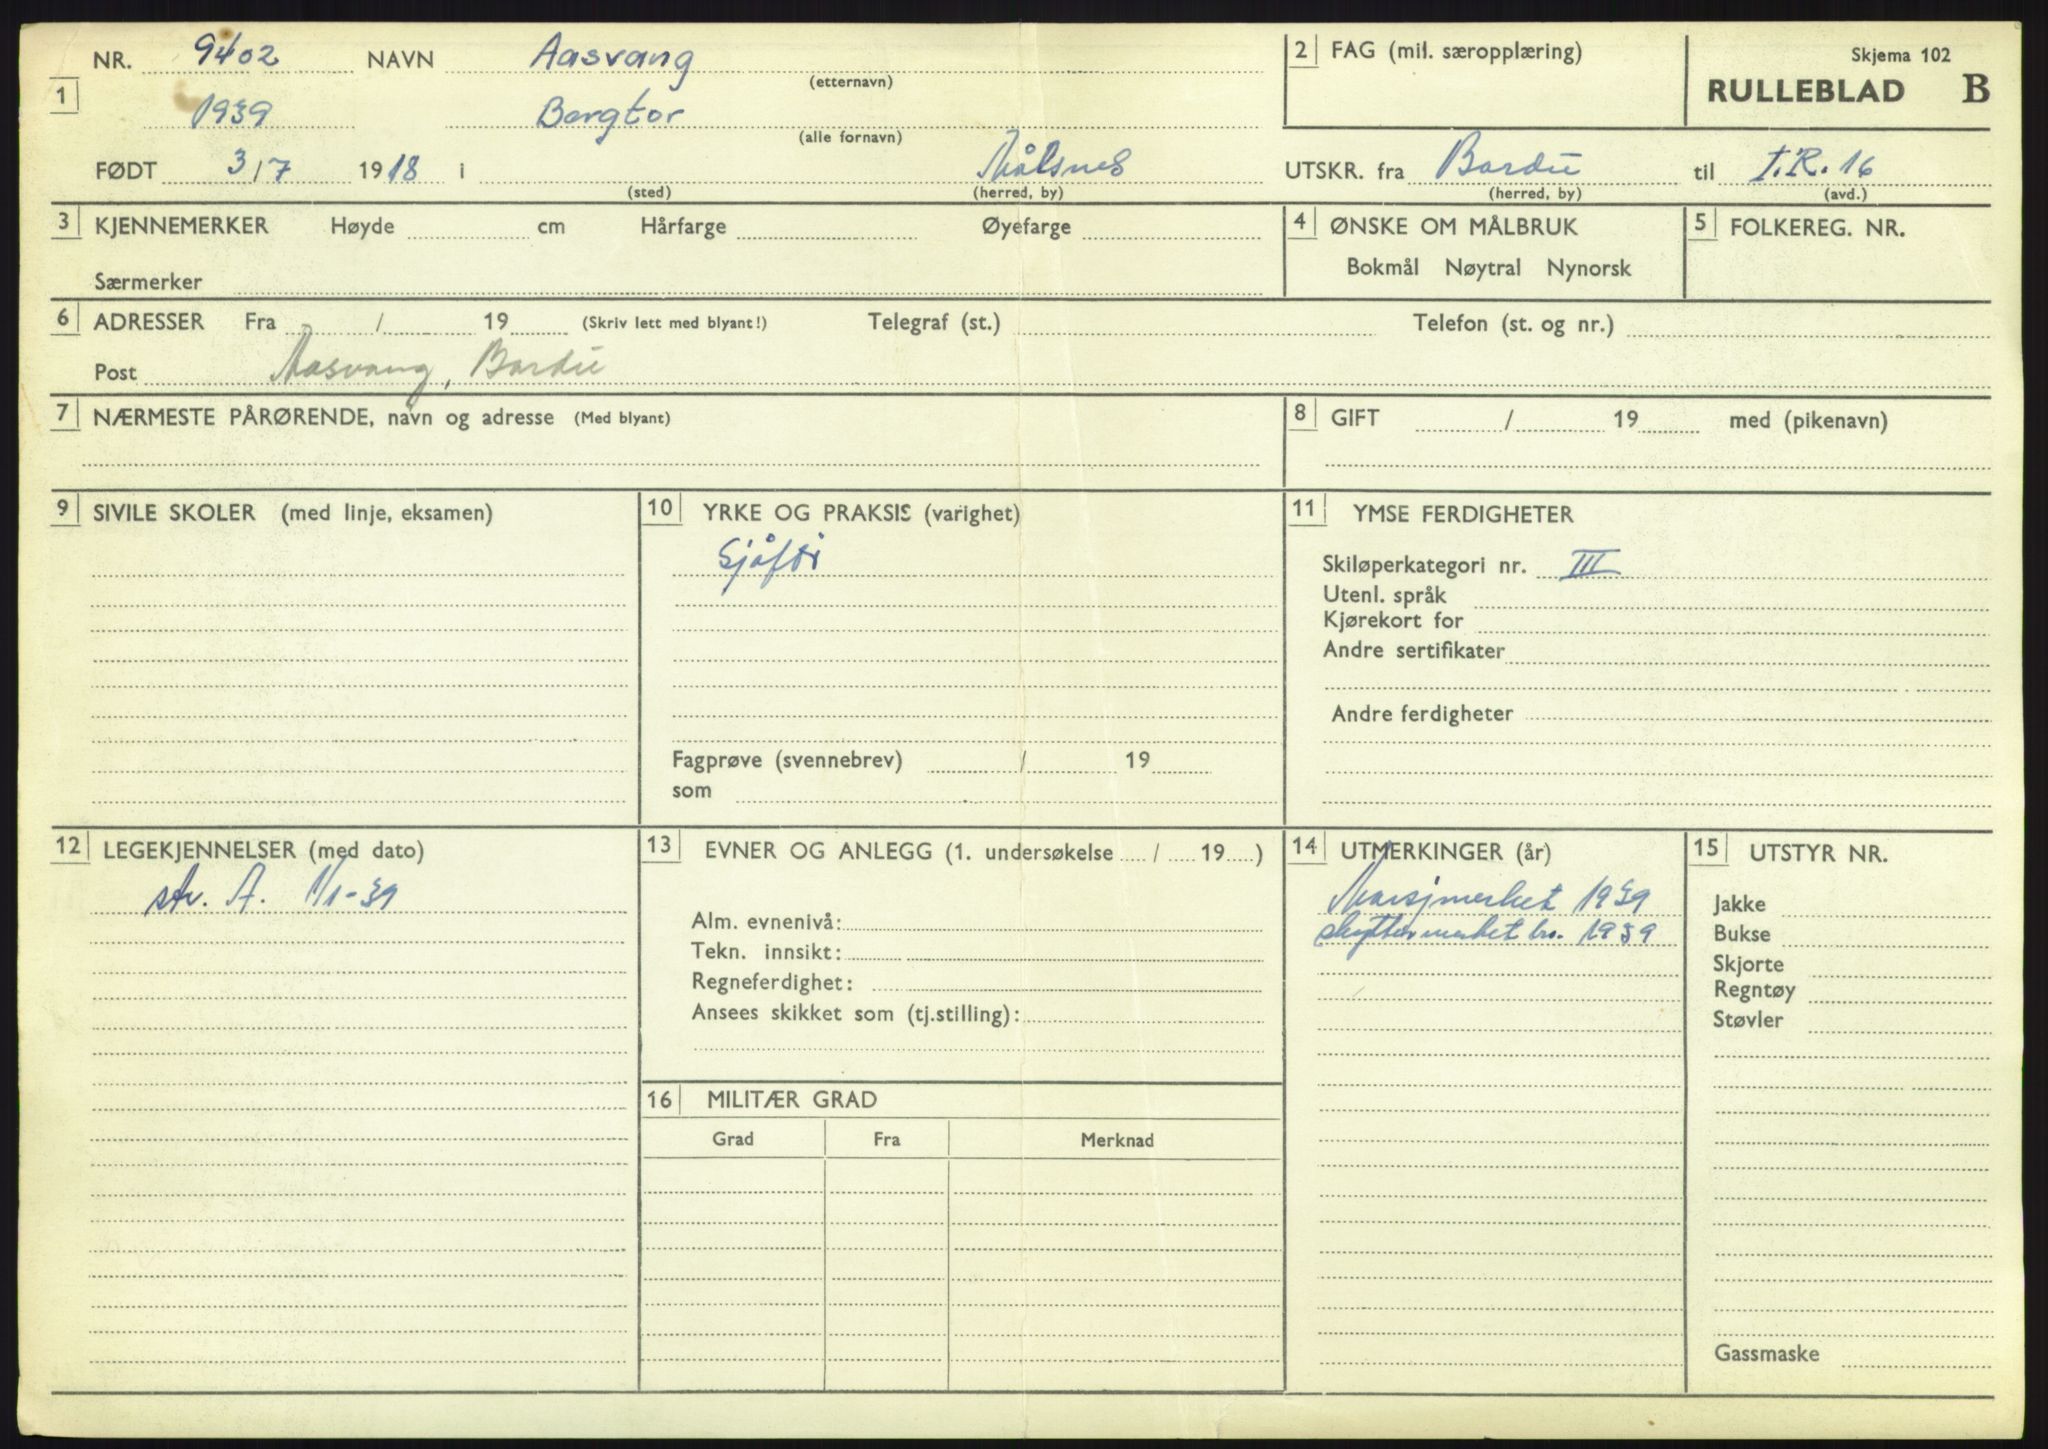 NR. 9402 NAVN Aasvang 2 FAG (mil. særopplæring) Skjema 102
(etternavn) RULLEBLAD B
1 1939 Bergtor
(alle fornavn)
FØDT 3/7 1918 i Målsnes UTSKR. fra Bardu til I.R. 16
(sted) (herred, by) (herred, by) (avd.)
3 KJENNEMERKER Høyde cm Hårfarge Øyefarge 4 ØNSKE OM MÅLBRUK 5 FOLKEREG. NR.
Bokmål Nøytral Nynorsk
Særmerker
6 ADRESSER Fra / 19 (Skriv lett med blyant!) Telegraf (st.) Telefon (st. og nr.)
Post Aasvang, Bardu
7 NÆRMESTE PÅRØRENDE, navn og adresse (Med blyant) 8 GIFT / 19 med (pikenavn)
9 SIVILE SKOLER (med linje, eksamen) 10 YRKE OG PRAKSIS (varighet) 11 YMSE FERDIGHETER
Sjåfør
Skiløperkategori nr. III
Utenl. språk
Kjørekort for
Andre sertifikater
Andre ferdigheter
Fagprøve (svennebrev) / 19
som
12 LEGEKJENNELSER (med dato) 13 EVNER OG ANLEGG (1. undersøkelse / 19 ) 14 UTMERKINGER (år) 15 UTSTYR NR.
stv. A. 1/1-39 Marsjmerket 1939 Jakke
Alm. evnenivå: Skyttermerket br. 1939 Bukse
Tekn. innsikt: Skjorte
Regneferdighet: Regntøy
Ansees skikket som (tj.stilling): Støvler
16 MILITÆR GRAD
Grad Fra Merknad
Gassmaske